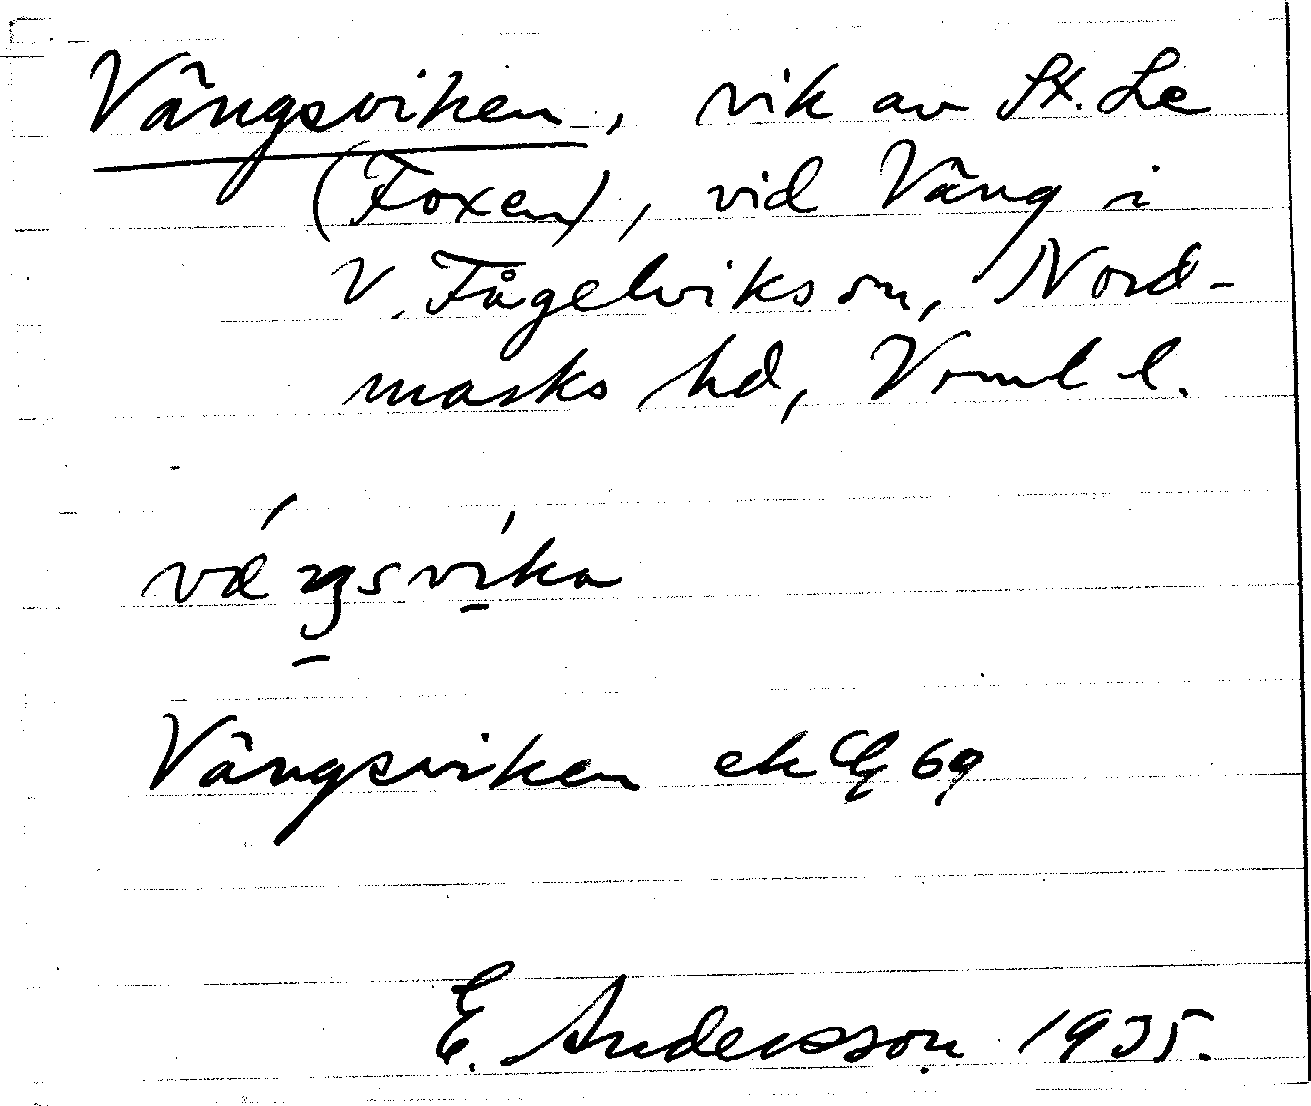 Vängsviken, vik av St. Le
(Foxen), vid Väng i
V. Fågelviks sn, Nord-
marks hd, Vrml l.
væŋsvika
Vängsviken ek 69
E. Andersson 1935.